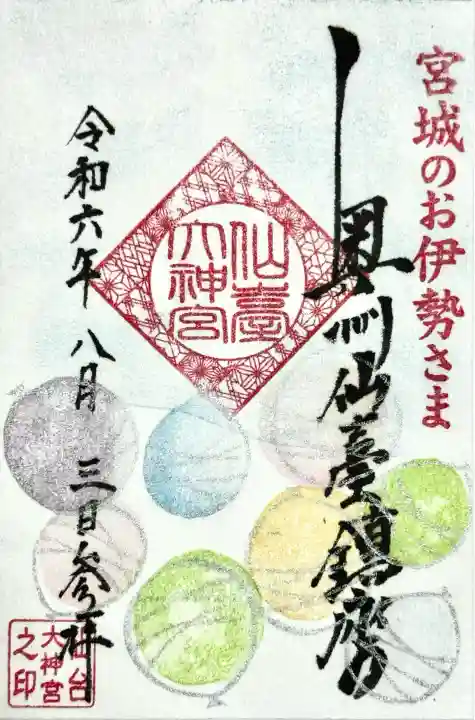 宮城のお伊勢さま
奥州仙臺鎮齋
仙臺
大神宮
令和六年八月三日参拝
仙台
大神宮
之印